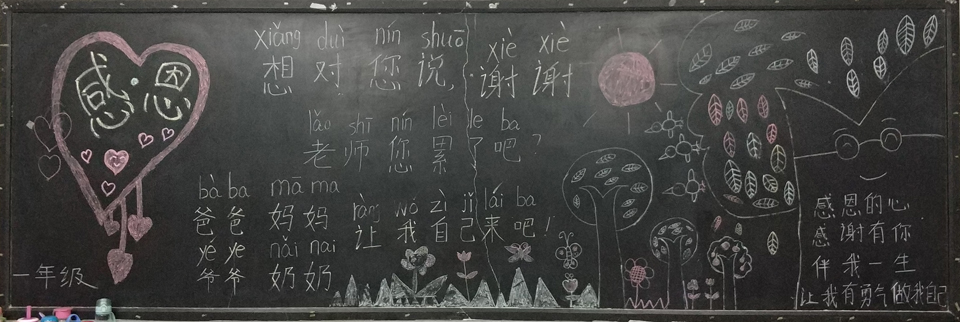 感·恩
xiǎng duì nín shuō xiè xiè
想 对 您 说, 谢 谢
lǎo shī nín lèi le ba
老 师 您 累 了 吧?
bà ba mā ma ràng wǒ zì jǐ lái ba
爸 爸 妈 妈 让 我 自 己 来 吧!
yé ye nǎi nai
爷 爷 奶 奶
一年级
感恩的心
感谢有你
伴我一生
让我有勇气做我自己